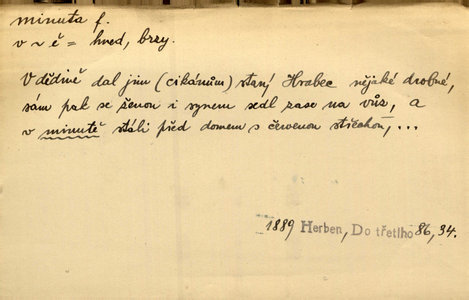 minuta f.
v ~ ě = hned, brzy.
V dědině dal jim (cikánům) starý Hrabec nějaké drobné,
sám pak se ženou i synem sedl zase na vůz, a
v minutě stáli před domem s červenou střechou,...
1889 Herben, Do třetího 86, 94.